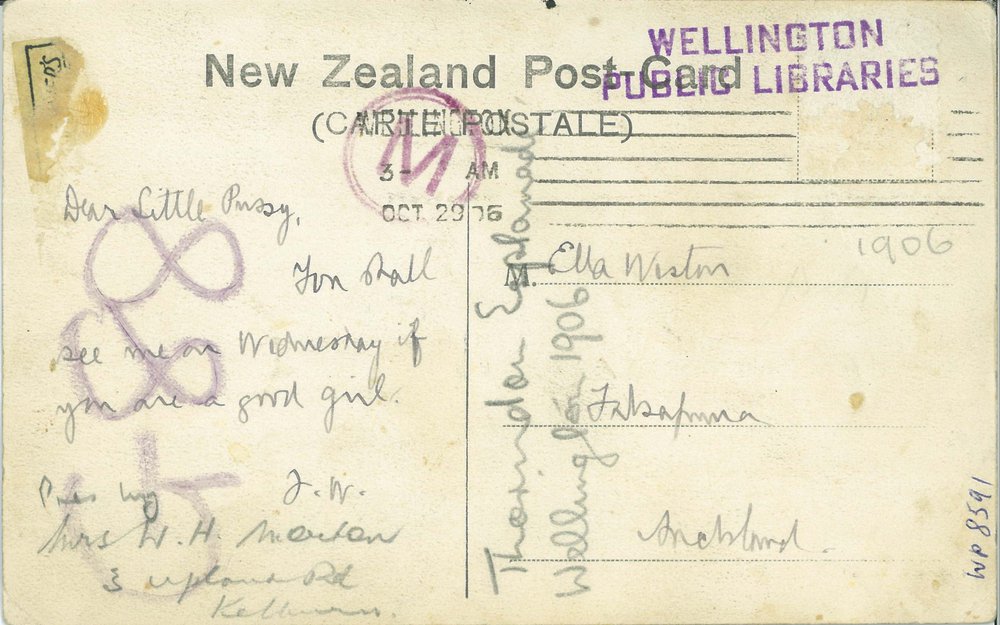 WELLINGTON
PUBLIC LIBRARIES
New Zealand Post Card
(CARTE POSTALE)
WELLINGTON
M
3- AM
OCT 29 06
1906
Dear Little Pussy,
You shall
see me on Wednesday if
you are a good girl.
J.W.
Pres by
Mrs W. H. Morton
3 Upland Rd
Kelburn.
M. Ella Weston
Takapuna
Auckland.
Thorndon Esplanade
Wellington 1906
WP 8591